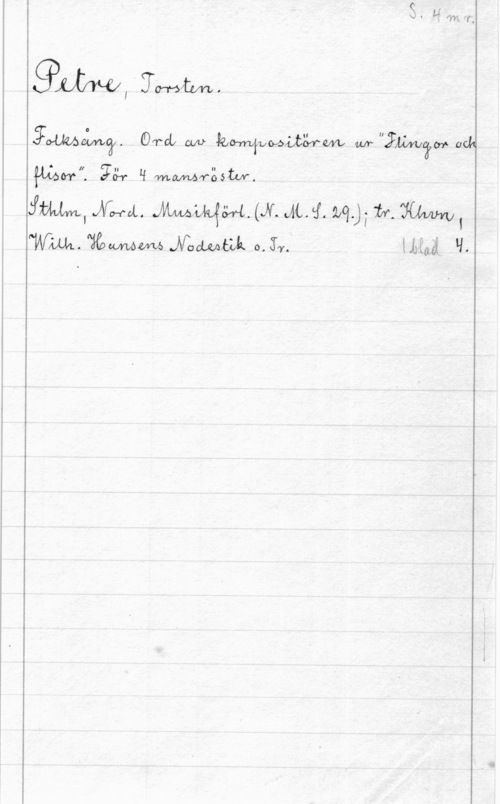 S. 4 mr.
Petre, Torsten.
Folksång. Ord av kompositören ur "Flingor och
flisor". För 4 mansröster.
Sthlm, Nord. Musikförl. (N. M. S. 29.); tr. Khvn,
Wilh. Hansens Nodestik o. Tr. 1 blad 4.